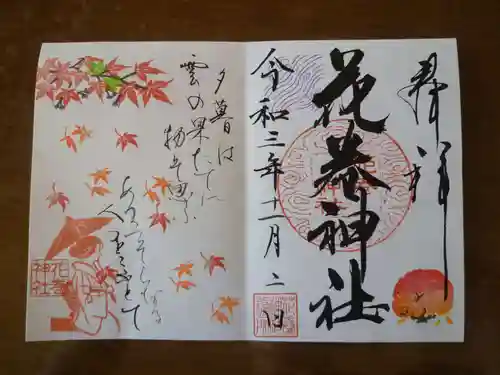 奉拝
花巻神社
令和三年十一月二日
夕暮は
雲の果たてに
物ぞ思ふ
あまつそらなる
人をこふとて